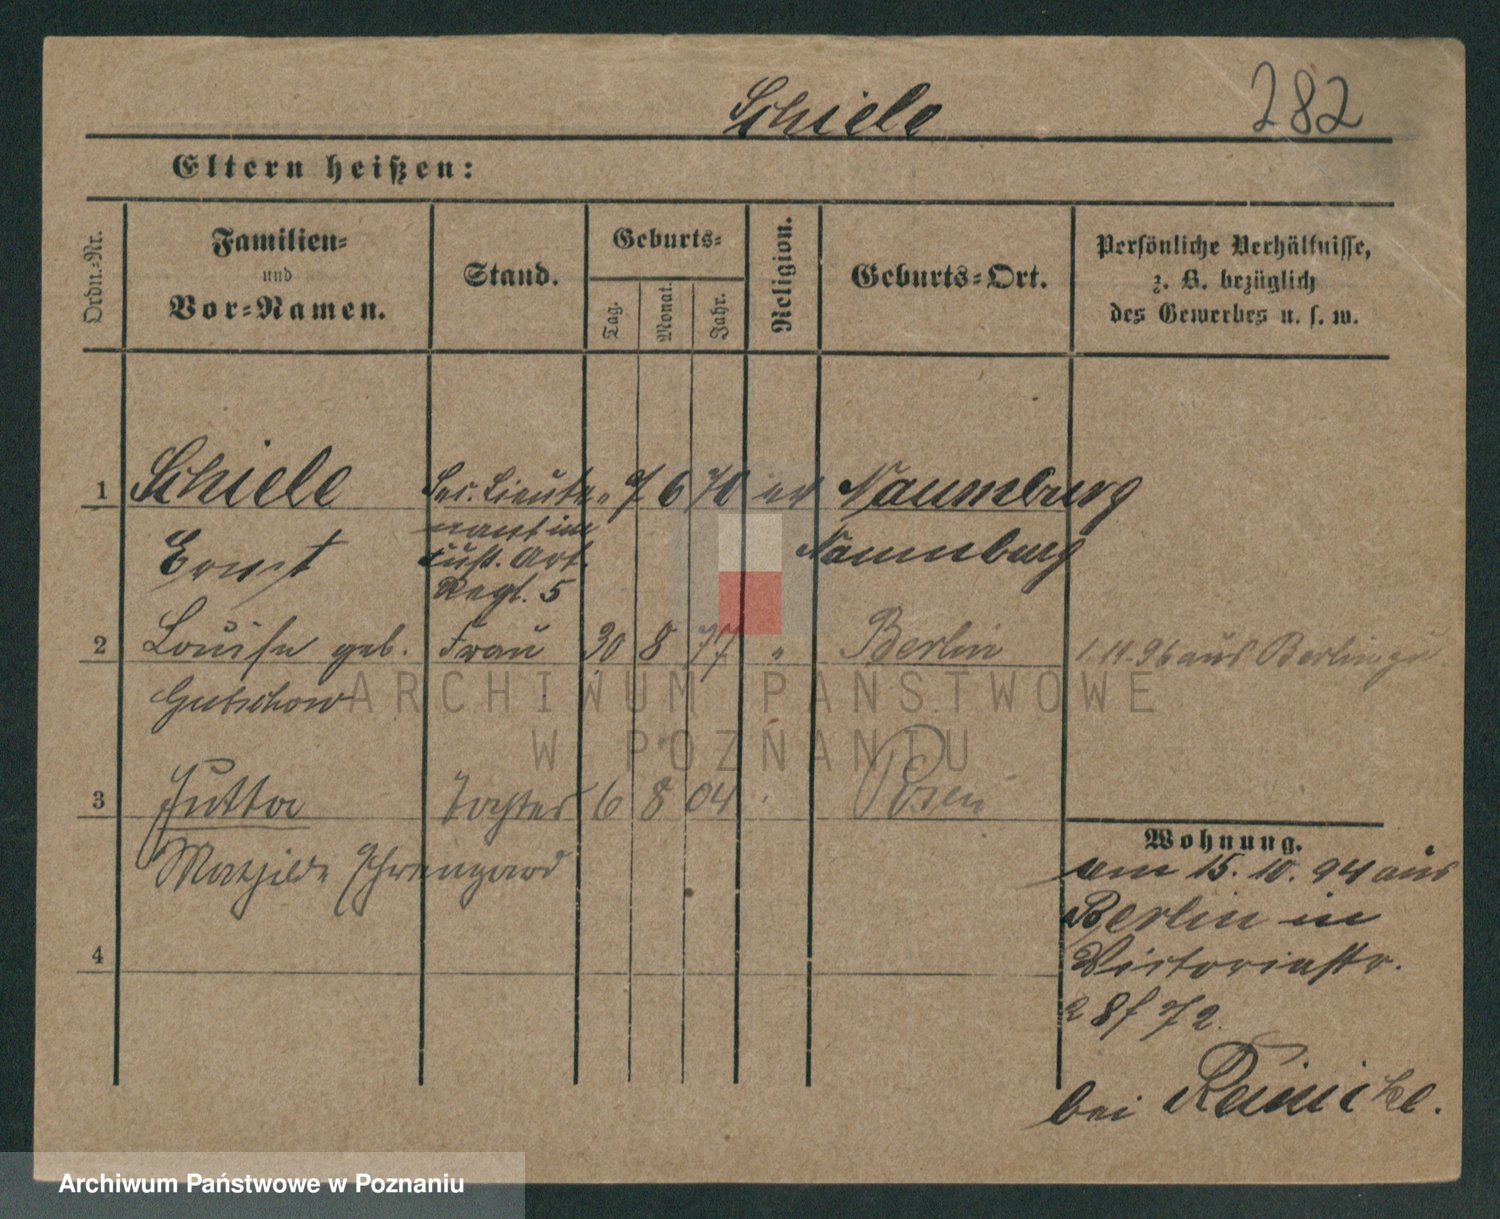 Schiele 282
Eltern heißen:
Ordn.-Nr. Familien- und Vor-Namen. Stand. Geburts- Tag. Monat. Jahr. Religion. Geburts-Ort. Persönliche Verhältnisse, z. B. bezüglich des Gewerbes u. s. w.
1 Schiele Sec. Lieute- 7 6 70 ev Naumburg
nant im
Ernst Fußt. Art. Naumburg
Regt. 5
2 Louise geb. Frau 30 8 77 " Berlin 1. 11. 96 aus Berlin zu
Gutschow
3 Jutta Tochter 6 8 04 Posen
Mathilde
4
Wohnung.
am 15. 10. 94 aus
Berlin in
Victoriastr.
bei Reinicke.
ARCHIWUM PAŃSTWOWE
W POZNANIU
Archiwum Państwowe w Poznaniu